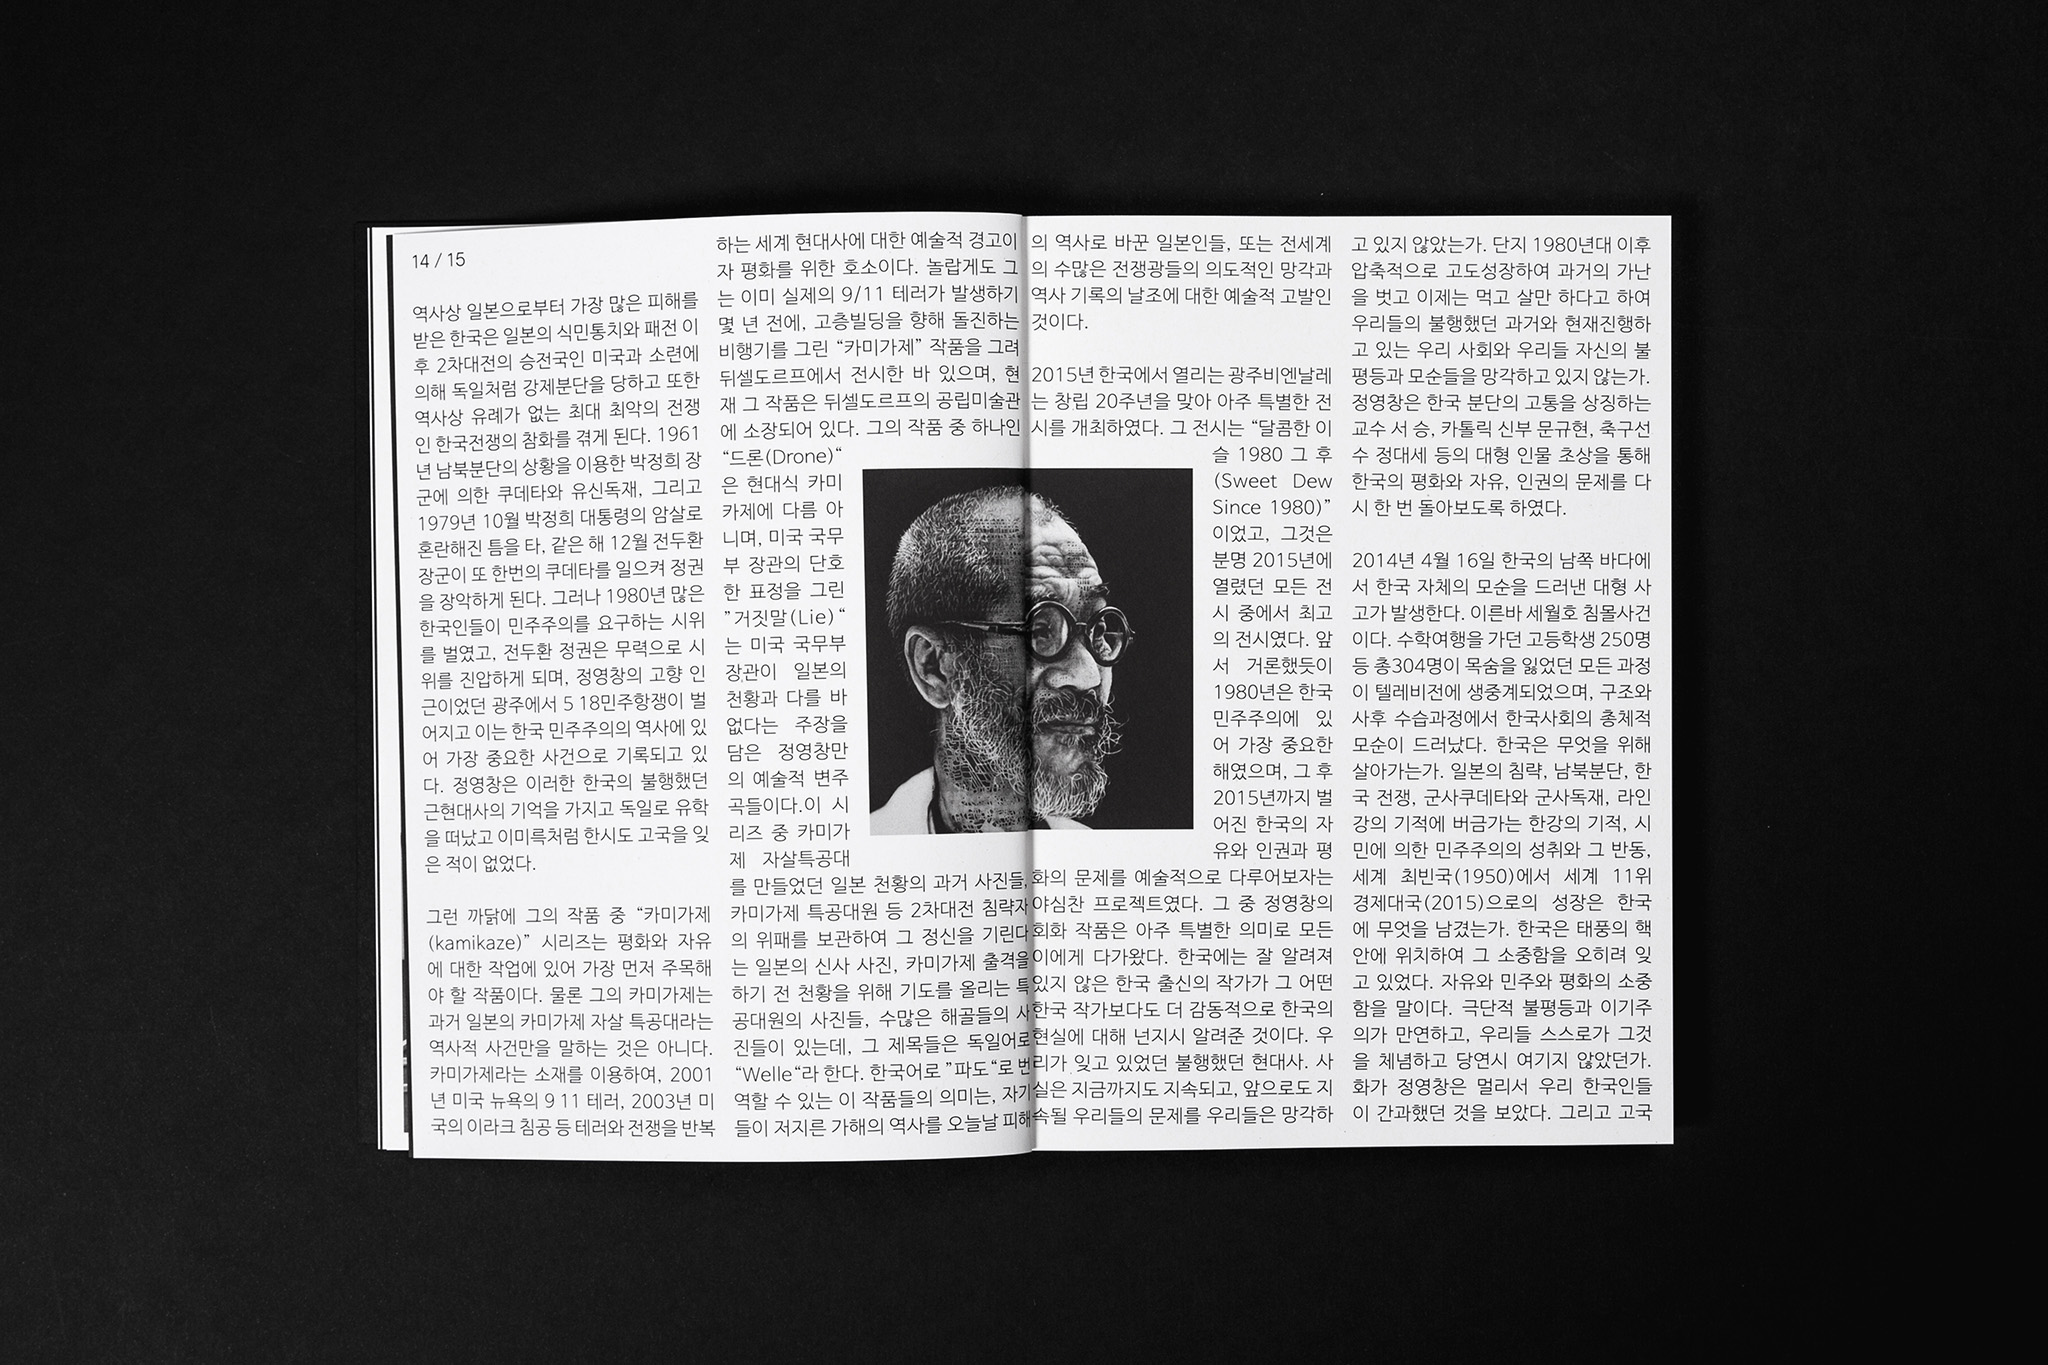 14 / 15
역사상 일본으로부터 가장 많은 피해를
받은 한국은 일본의 식민통치와 패전 이
후 2차대전의 승전국인 미국과 소련에
의해 독일처럼 강제분단을 당하고 또한
역사상 유례가 없는 최대 최악의 전쟁
인 한국전쟁의 참화를 겪게 된다. 1961
년 남북분단의 상황을 이용한 박정희 장
군에 의한 쿠데타와 유신독재, 그리고
1979년 10월 박정희 대통령의 암살로
혼란해진 틈을 타, 같은 해 12월 전두환
장군이 또 한번의 쿠데타를 일으켜 정권
을 장악하게 된다. 그러나 1980년 많은
한국인들이 민주주의를 요구하는 시위
를 벌였고, 전두환 정권은 무력으로 시
위를 진압하게 되며, 정영창의 고향 인
근이었던 광주에서 5 18민주항쟁이 벌
어지고 이는 한국 민주주의의 역사에 있
어 가장 중요한 사건으로 기록되고 있
다. 정영창은 이러한 한국의 불행했던
근현대사의 기억을 가지고 독일로 유학
을 떠났고 이미륵처럼 한시도 고국을 잊
은 적이 없었다.
그런 까닭에 그의 작품 중 “카미가제
(kamikaze)” 시리즈는 평화와 자유
에 대한 작업에 있어 가장 먼저 주목해
야 할 작품이다. 물론 그의 카미가제는
과거 일본의 카미가제 자살 특공대라는
역사적 사건만을 말하는 것은 아니다.
카미가제라는 소재를 이용하여, 2001
년 미국 뉴욕의 9 11 테러, 2003년 미
국의 이라크 침공 등 테러와 전쟁을 반복
하는 세계 현대사에 대한 예술적 경고이
자 평화를 위한 호소이다. 놀랍게도 그
는 이미 실제의 9/11 테러가 발생하기
몇 년 전에, 고층빌딩을 향해 돌진하는
비행기를 그린 “카미가제” 작품을 그려
뒤셀도르프에서 전시한 바 있으며, 현
재 그 작품은 뒤셀도르프의 공립미술관
에 소장되어 있다. 그의 작품 중 하나인
“드론(Drone)“
은 현대식 카미
카제에 다름 아
니며, 미국 국무
부 장관의 단호
한 표정을 그린
”거짓말(Lie)“
는 미국 국무부
장관이 일본의
천황과 다를 바
없다는 주장을
담은 정영창만
의 예술적 변주
곡들이다.이 시
리즈 중 카미가
제 자살특공대
를 만들었던 일본 천황의 과거 사진들,
카미가제 특공대원 등 2차대전 침략자
의 위패를 보관하여 그 정신을 기린다
는 일본의 신사 사진, 카미가제 출격을
하기 전 천황을 위해 기도를 올리는 특
공대원의 사진들, 수많은 해골들의 사
진들이 있는데, 그 제목들은 독일어로
“Welle“라 한다. 한국어로 ”파도“로 번
역할 수 있는 이 작품들의 의미는, 자기
들이 저지른 가해의 역사를 오늘날 피해
의 역사로 바꾼 일본인들, 또는 전세계
의 수많은 전쟁광들의 의도적인 망각과
역사 기록의 날조에 대한 예술적 고발인
것이다.
2015년 한국에서 열리는 광주비엔날레
는 창립 20주년을 맞아 아주 특별한 전
시를 개최하였다. 그 전시는 “달콤한 이
슬 1980 그 후
(Sweet Dew
Since 1980)”
이었고, 그것은
분명 2015년에
열렸던 모든 전
시 중에서 최고
의 전시였다. 앞
서 거론했듯이
1980년은 한국
민주주의에 있
어 가장 중요한
해였으며, 그 후
2015년까지 벌
어진 한국의 자
유와 인권과 평
화의 문제를 예술적으로 다루어보자는
야심찬 프로젝트였다. 그 중 정영창의
회화 작품은 아주 특별한 의미로 모든
이에게 다가왔다. 한국에는 잘 알려져
있지 않은 한국 출신의 작가가 그 어떤
한국 작가보다도 더 감동적으로 한국의
현실에 대해 넌지시 알려준 것이다. 우
리가 잊고 있었던 불행했던 현대사. 사
실은 지금까지도 지속되고, 앞으로도 지
속될 우리들의 문제를 우리들은 망각하
고 있지 않았는가. 단지 1980년대 이후
압축적으로 고도성장하여 과거의 가난
을 벗고 이제는 먹고 살만 하다고 하여
우리들의 불행했던 과거와 현재진행하
고 있는 우리 사회와 우리들 자신의 불
평등과 모순들을 망각하고 있지 않는가.
정영창은 한국 분단의 고통을 상징하는
교수 서 승, 카톨릭 신부 문규현, 축구선
수 정대세 등의 대형 인물 초상을 통해
한국의 평화와 자유, 인권의 문제를 다
시 한 번 돌아보도록 하였다.
2014년 4월 16일 한국의 남쪽 바다에
서 한국 자체의 모순을 드러낸 대형 사
고가 발생한다. 이른바 세월호 침몰사건
이다. 수학여행을 가던 고등학생 250명
등 총304명이 목숨을 잃었던 모든 과정
이 텔레비전에 생중계되었으며, 구조와
사후 수습과정에서 한국사회의 총체적
모순이 드러났다. 한국은 무엇을 위해
살아가는가. 일본의 침략, 남북분단, 한
국 전쟁, 군사쿠데타와 군사독재, 라인
강의 기적에 버금가는 한강의 기적, 시
민에 의한 민주주의의 성취와 그 반동,
세계 최빈국(1950)에서 세계 11위
경제대국(2015)으로의 성장은 한국
에 무엇을 남겼는가. 한국은 태풍의 핵
안에 위치하여 그 소중함을 오히려 잊
고 있었다. 자유와 민주와 평화의 소중
함을 말이다. 극단적 불평등과 이기주
의가 만연하고, 우리들 스스로가 그것
을 체념하고 당연시 여기지 않았던가.
화가 정영창은 멀리서 우리 한국인들
이 간과했던 것을 보았다. 그리고 고국